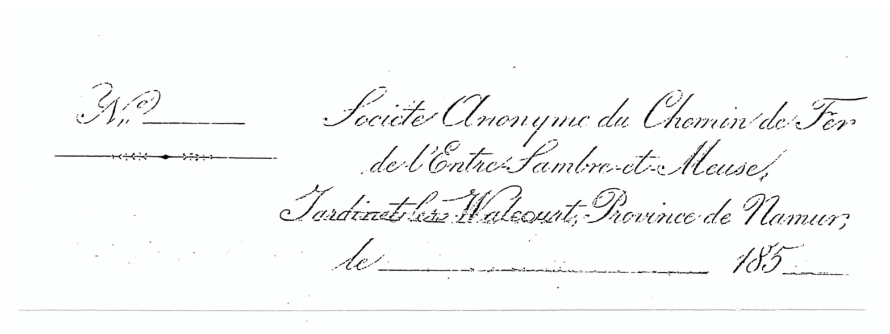 N.º ______
Société Anonyme du Chemin de Fer
de l'Entre-Sambre-et-Meuse,
Jardinet lez Walcourt, Province de Namur,
le ______ 185__